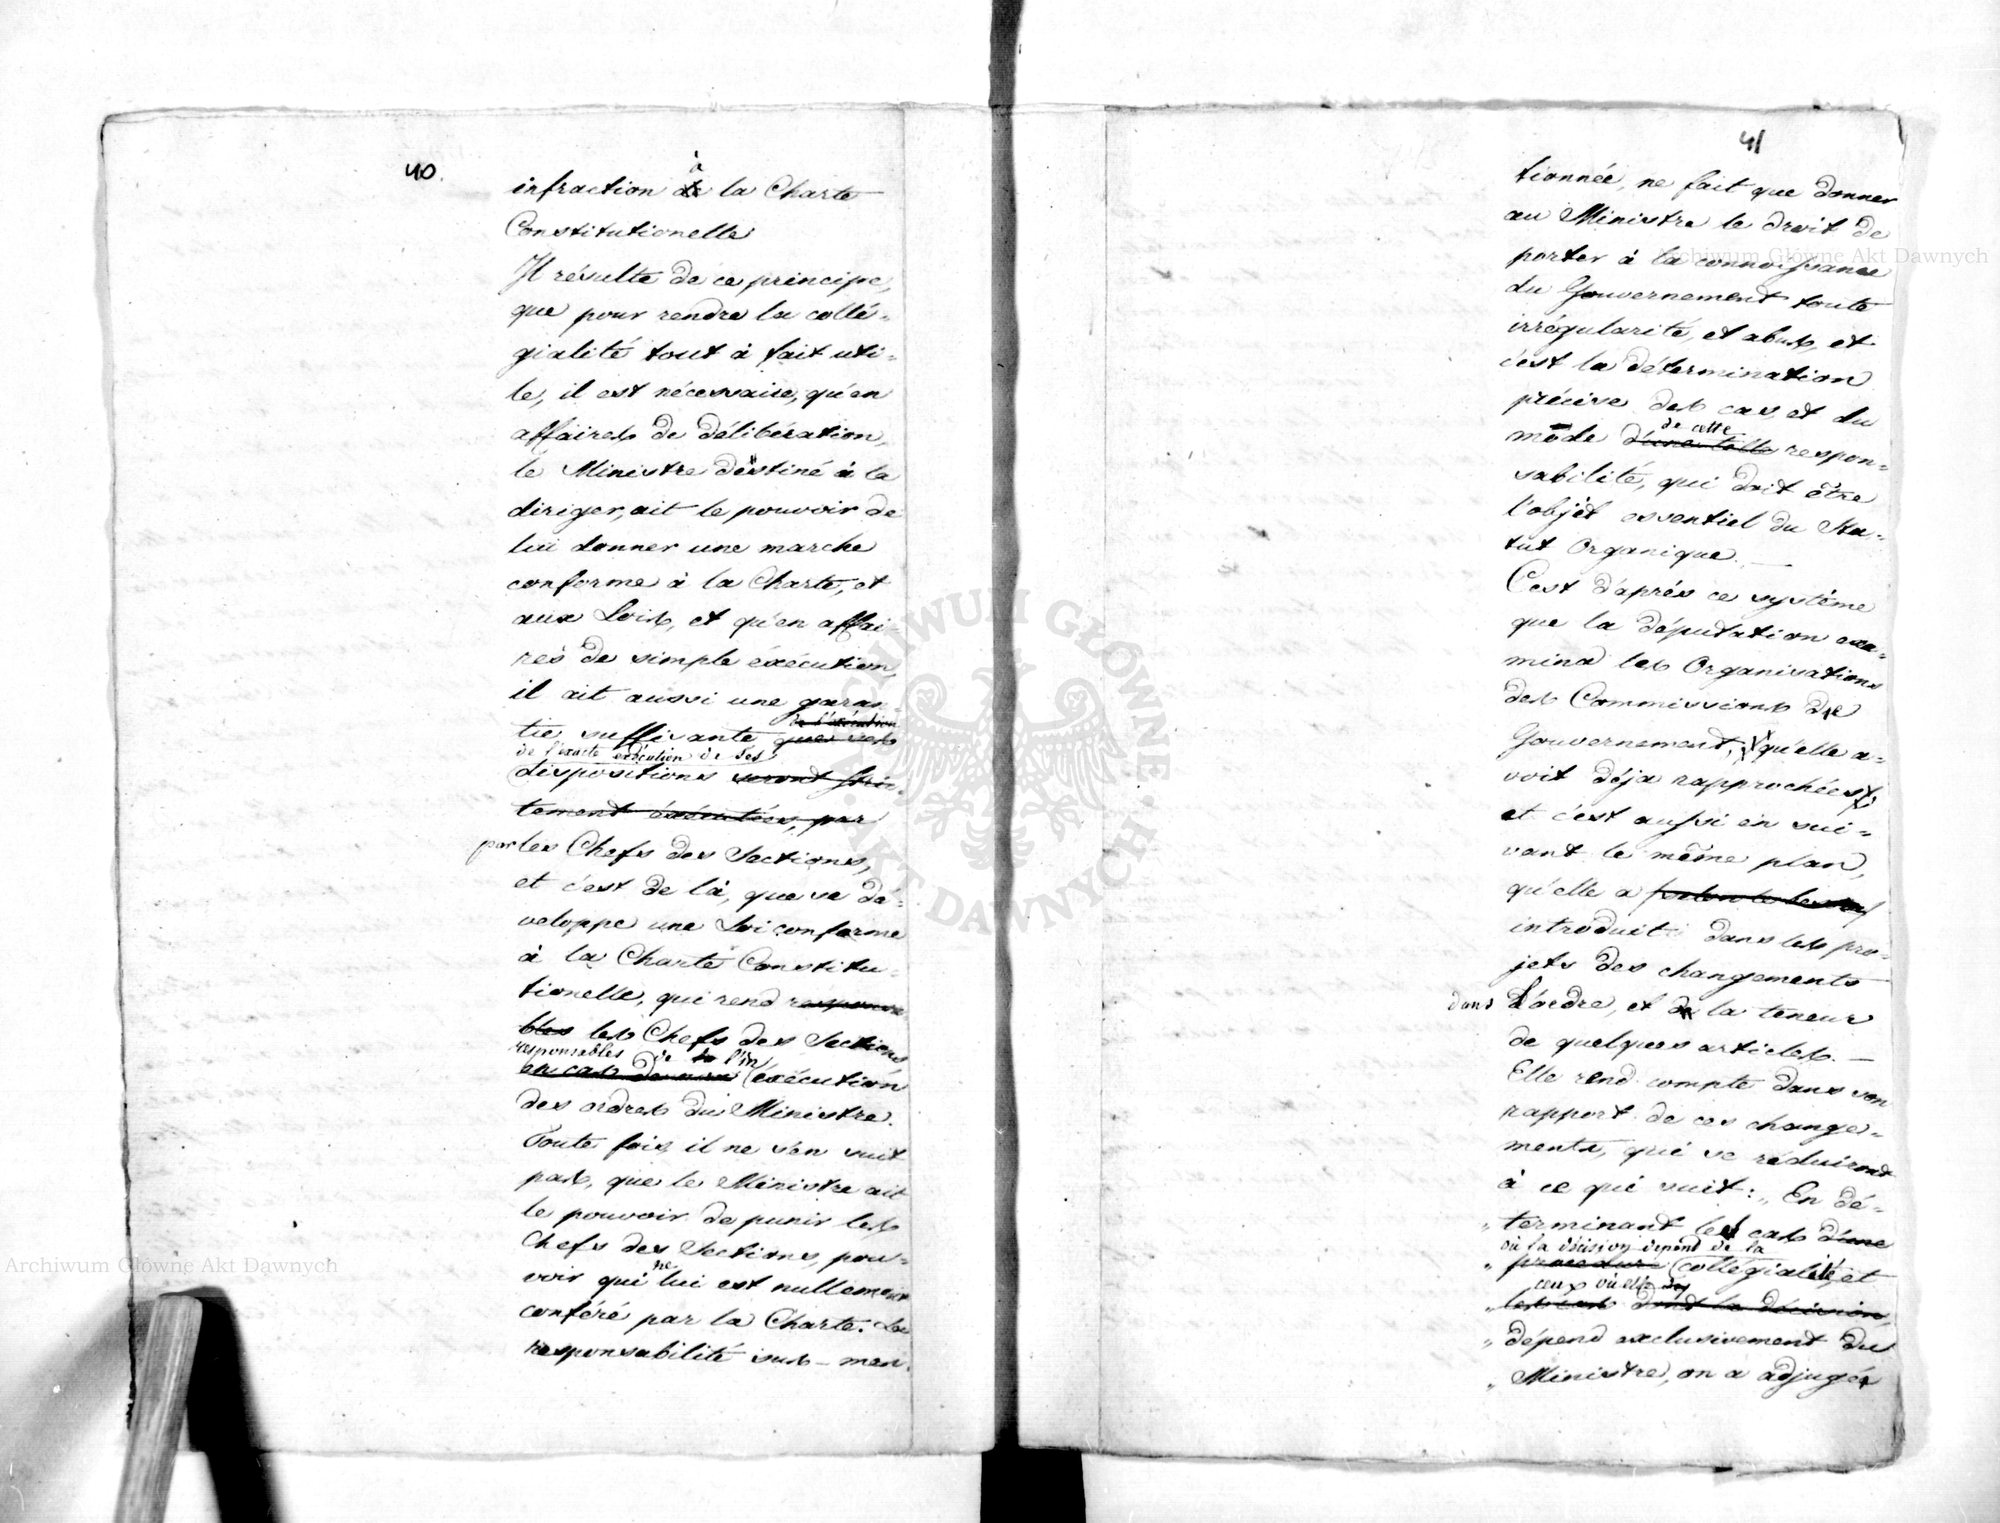 40.
à
infraction de la Charte
Constitutionelle
Il résulte de ce principe,
que pour rendre la collé-
gialité tout à fait uti-
le, il est nécessaire, qu'en
affaires de délibération,
le Ministre destiné à la
diriger, ait le pouvoir de
lui donner une marche
conforme à la Charte, et
aux Lois, et qu'en affai-
res de simple éxécution,
il ait aussi une garan-
de l'éxécution
tie suffisante que ses
de l'exacte exécution de ses
dispositions seront stric-
tement éxécutées, par
par les Chefs des Sections,
et c'est de là, que se dé-
veloppe une Loi conforme
à la Charte Constitu-
tionelle, qui rend responsa
bles les Chefs des Sections
responsables de l'in
en cas de non éxécution
des ordres du Ministre.
Toute fois il ne s'en suit
pas, que le Ministre ait
le pouvoir de punir les
Chefs des Sections, pou-
ne
voir qui lui est nullement
conféré par la Charte. La
responsabilité sus-men
41
tionnée, ne fait que donner
au Ministre le droit de
porter à la connoissance
du Gouvernement toute
irrégularité, et abus, et
c'est la détermination
précise des cas, et du
de cette
mode d'une telle respon-
sabilité, qui doit être
l'objèt essentiel du Sta-
tut Organique. —
C'est d'après ce système
que la députation exa-
mina les Organisations
des Commissions de
Gouvernement, qu'elle a-
voit déja rapprochées,
et c'est aussi en sui-
vant le même plan,
qu'elle a
introduit dans les pro-
jets des changements
dans L'ordre, et de la teneur
de quelques articles. —
Elle rend compte dans son
rapport de ces change-
ments, qui se réduisent
à ce qui suit: „ En dé-
„ terminant les cas d'une
où la décision dépend de la
„ procedure collégialité, et
ceux où elle
„ les cas dont la décision
„ dépend exclusivement du
„ Ministre, on a adjugée
Archiwum Główne Akt Dawnych
Archiwum Główne Akt Dawnych
ARCHIWUM GŁÓWNE AKT DAWNYCH